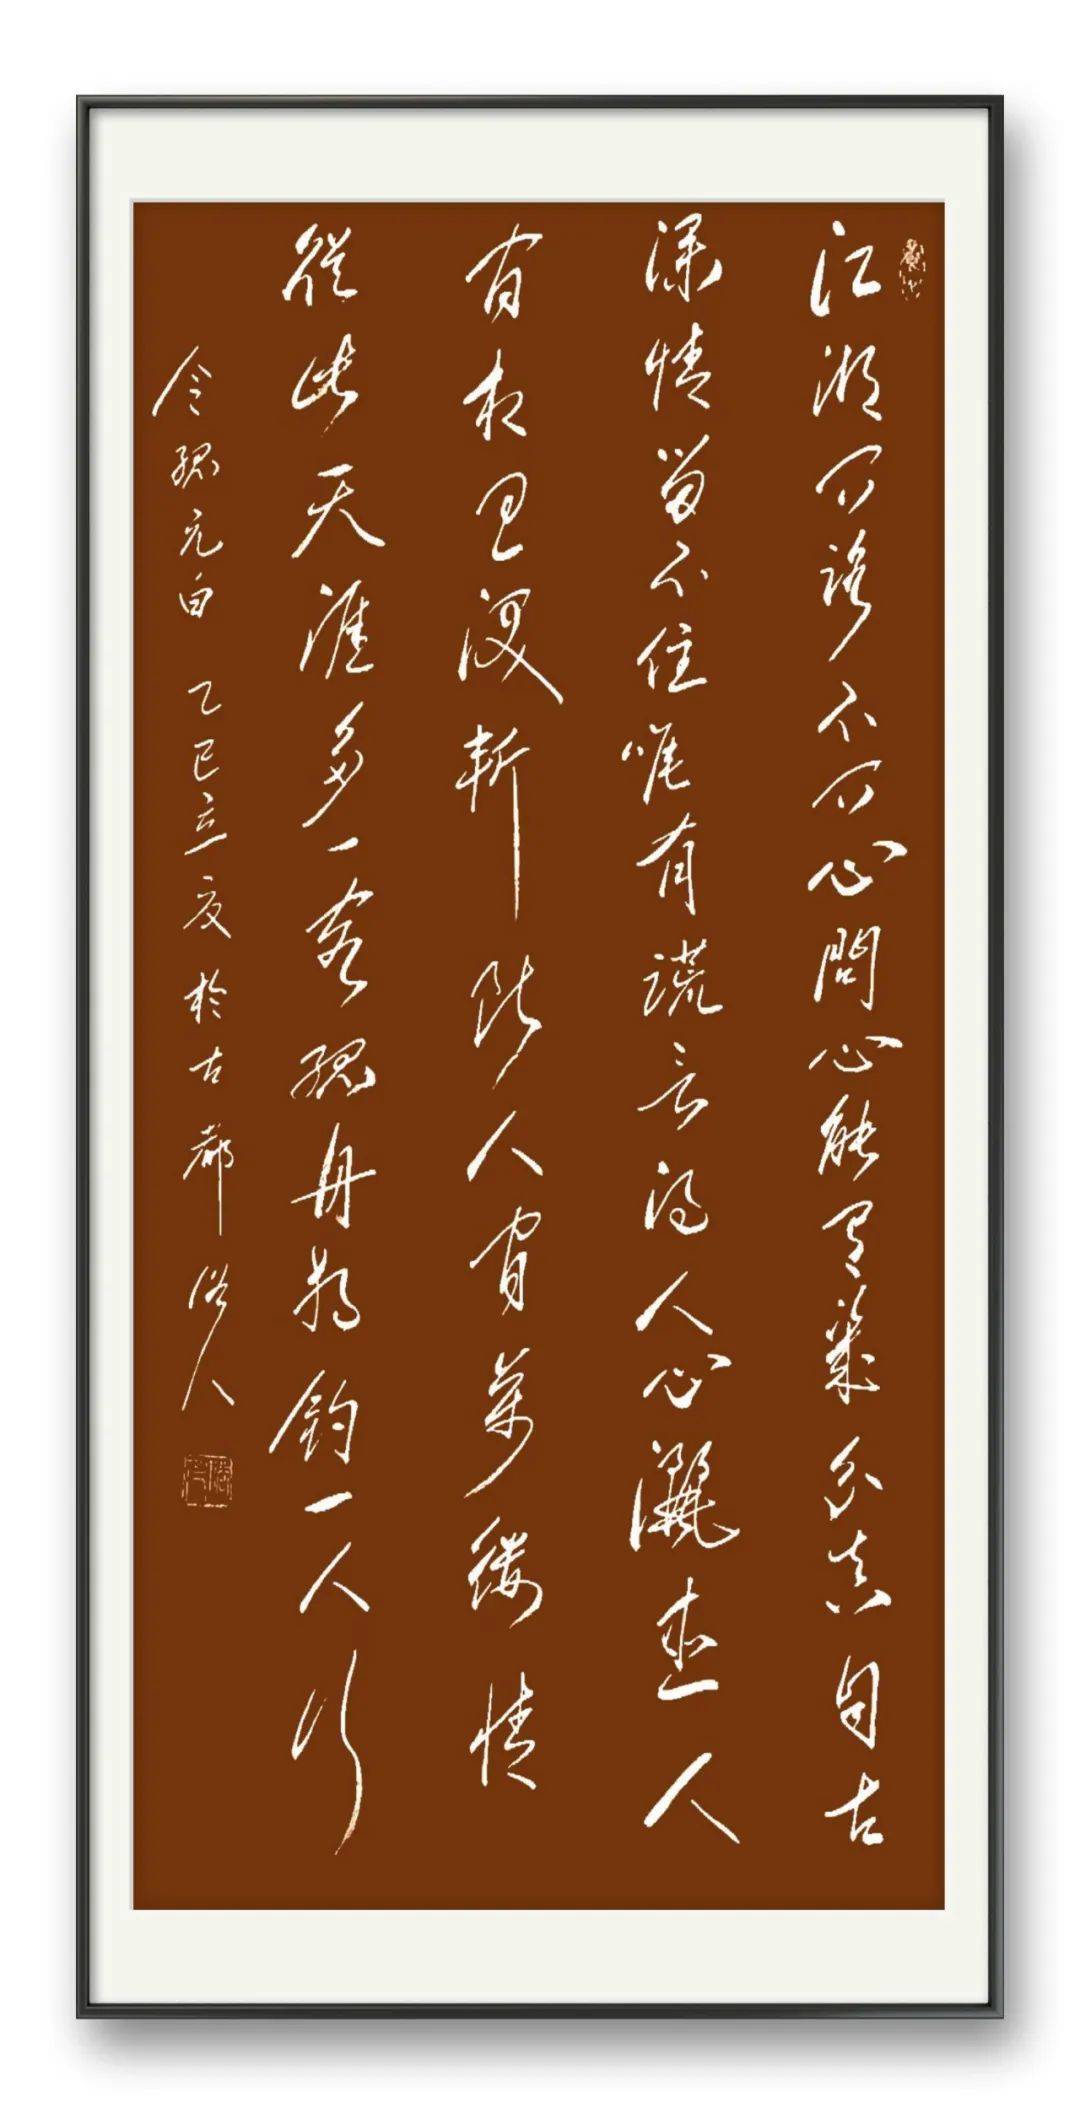 江湖可不可心問心能有幾分真自古
深情留不住唯有謊言得人心灑盡人
間相思淚斬斷人間萬縷情
從此天涯多一客孤舟獨釣一人行
令孤元白 乙巳立夏於古都俗人